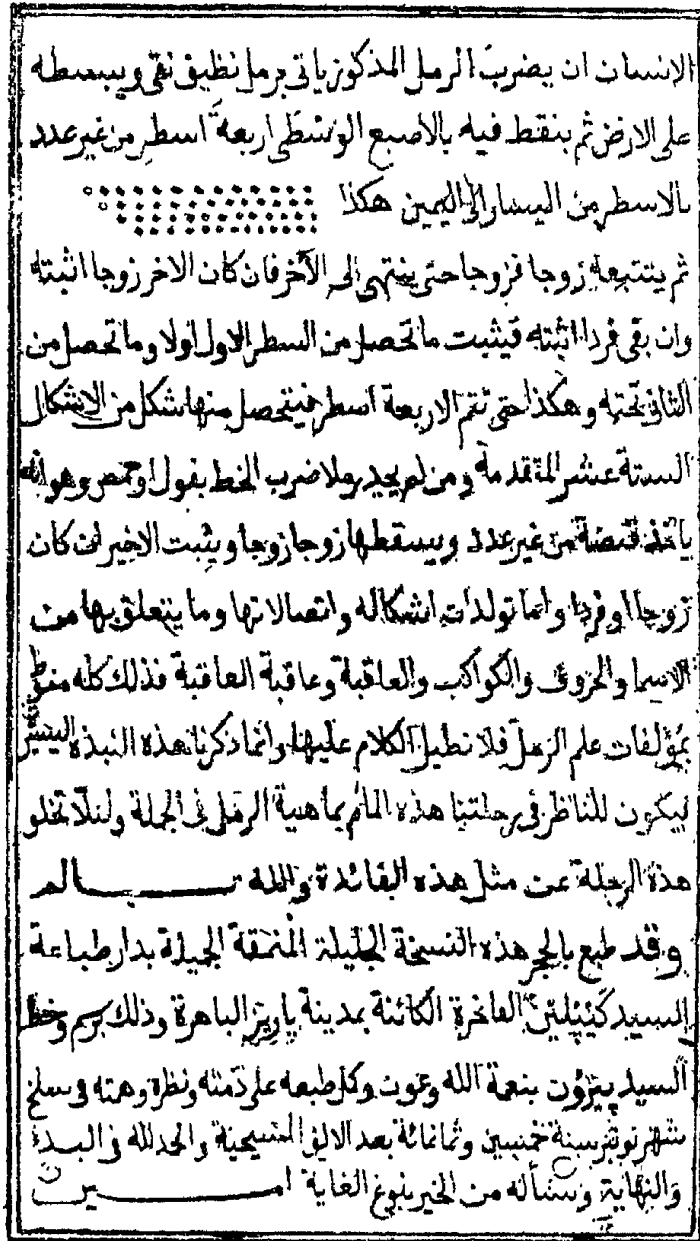 الانسان ان يضرب الرمل المذكور ياتى برمل نظيف نقى ويبسطه
على الارض ثم ينقط فيه بالاصبع الوسطى اربعة اسطر من غير عدد
بالاسطر من اليسار الى اليمين هكذا
ثم يتتبعه زوجا فزوجا حتى ينتهى الى الآخر فان كان الاخر زوجا اثبته
وان بقى فردا اثبته فيثبت ما تحصل من السطر الاول اولا وما تحصل من
الثانى تحته وهكذا حتى تتم الاربعة اسطر فيتحصل منها شكل من الاشكال
الستة عشر المتقدمة ومن لم يجد رملا ضرب الخط بفول او حمص وهو انه
ياخذ قبضة من غير عدد ويسقطها زوجا زوجا ويثبت الاخير ان كان
زوجا او فردا واما تولدات اشكاله واتصالاتها وما يتعلق بها من
الاسما والحروف والكواكب والعاقبة وعاقبة العاقبة فذلك كله منوط
بمؤلفات علم الرمل فلا نطيل الكلام عليها وانما ذكرنا هذه النبذة اليسيرة
ليكون للناظر فى رحلتنا هذه المام بماهية الرمل فى الجملة ولئلا تخلو
هذه الرحلة عن مثل هذه الفائدة والله
وقد طبع بالحجر هذه النسخة الجليلة المنمقة الجميلة بدار طباعة
السيد كيپلين الفاخرة الكائنة بمدينة پاريز الباهرة وذلك برسم وخط
السيد پيرون بنعمة الله وعون وكل طبعه على ذمته ونظره وهمته فى سلخ
شهر نونبر سنة خمسين وثمانمائة بعد الالف المسيحية والحمد لله فى البدء
والنهاية ونسأله من الخير بلوغ الغاية امـــين